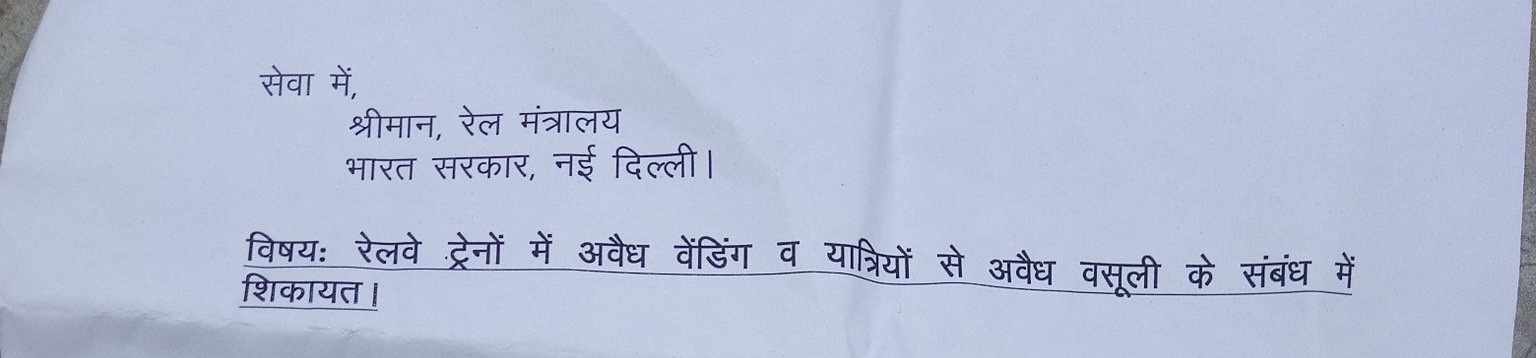 सेवा में,
श्रीमान, रेल मंत्रालय
भारत सरकार, नई दिल्ली।
विषयः रेलवे ट्रेनों में अवैध वेंडिंग व यात्रियों से अवैध वसूली के संबंध में
शिकायत।